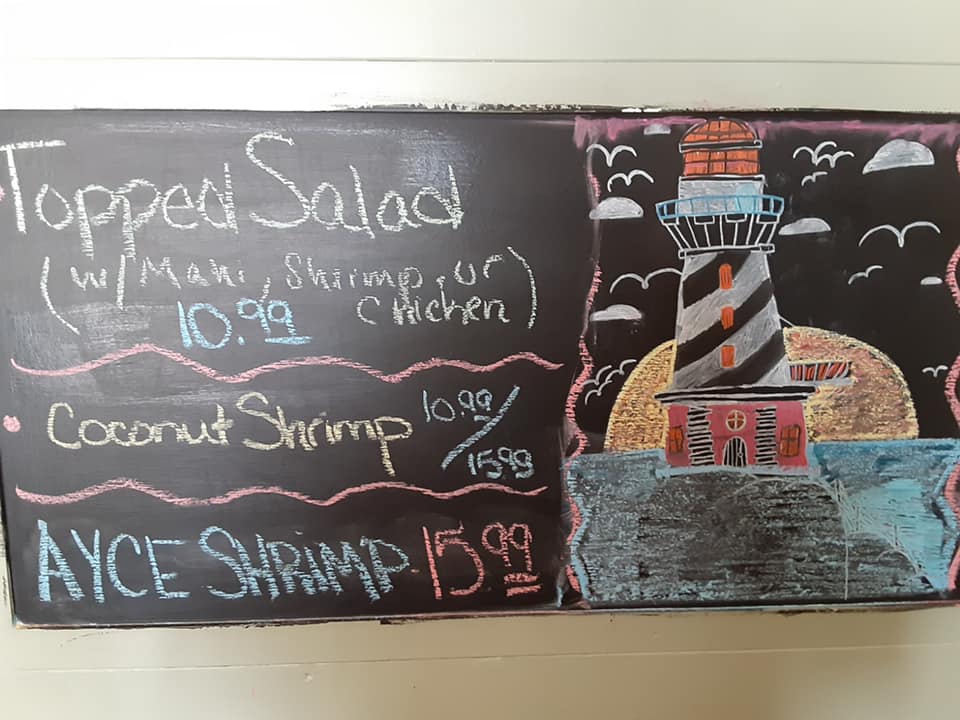 Topped Salad
(w/Mahi, Shrimp, or
10.99 Chicken)
Coconut Shrimp 10.99/
15.99
AYCE SHRIMP 15.99